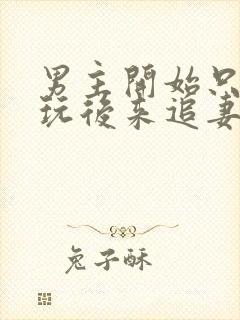 男主開始只
玩後來追妻
兔子酥